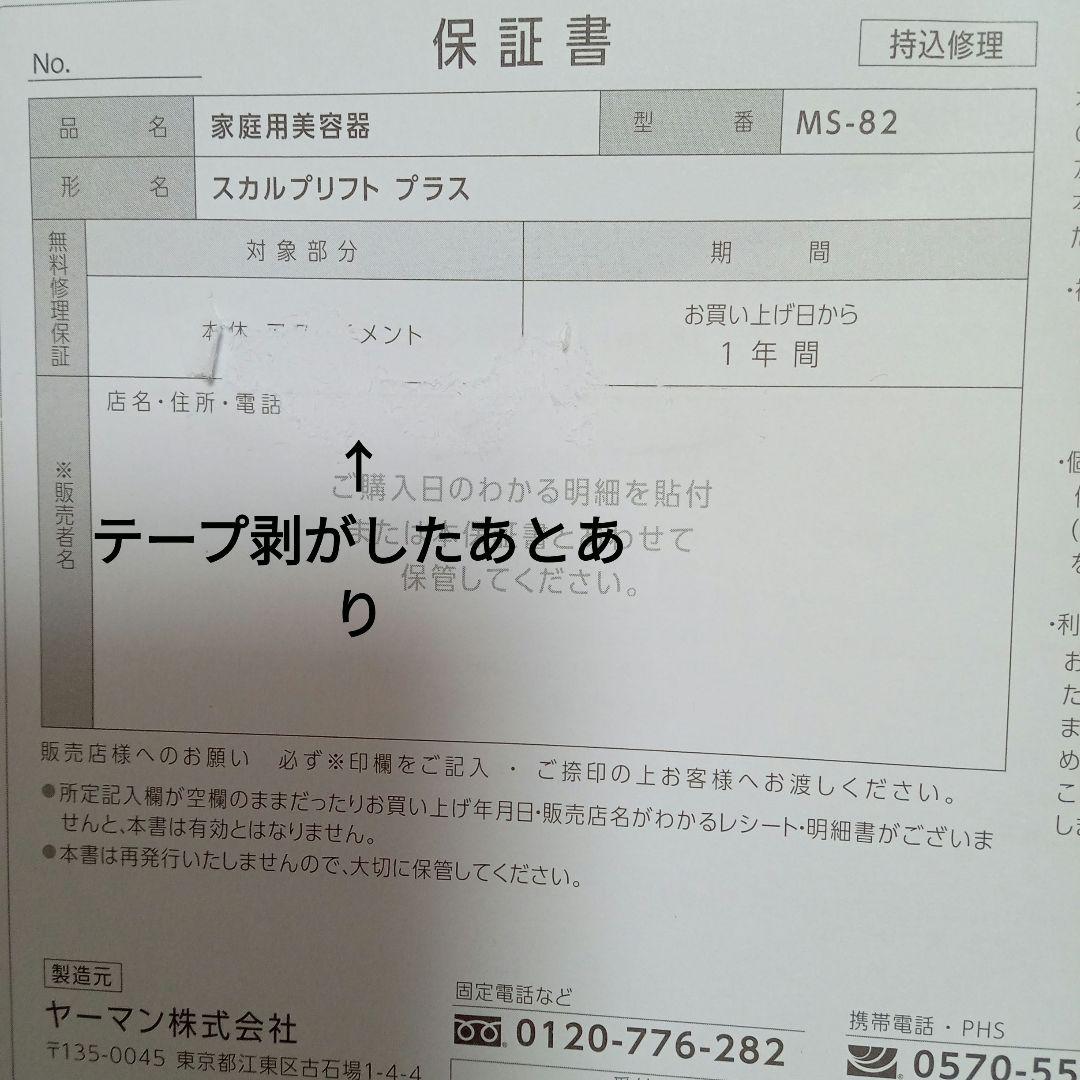 保証書
持込修理
No.
品名 家庭用美容器 型番 MS-82
形名 スカルプリフト プラス
無料修理保証
対象部分 期間
メント
お買い上げ日から
1年間
※販売者名
店名・住所・電話
↑
ご購入日のわかる明細を貼付
テープ剥がしたあとあ
または本保証書とあわせて
保管してください。
り
販売店様へのお願い 必ず※印欄をご記入・ご捺印の上お客様へお渡しください。
●所定記入欄が空欄のままだったりお買い上げ年月日・販売店名がわかるレシート・明細書がございま
せんと、本書は有効とはなりません。
●本書は再発行いたしませんので、大切に保管してください。
製造元
ヤーマン株式会社
〒135-0045 東京都江東区古石場1-4-4
固定電話など
0120-776-282
携帯電話・PHS
0570-55